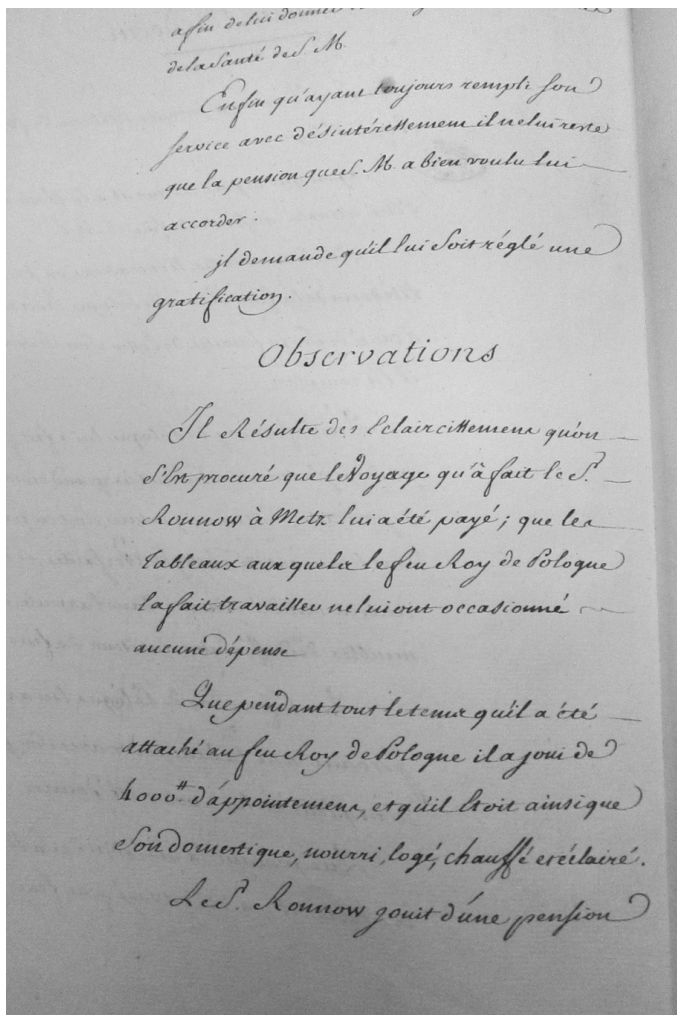 afin de lui donner
de la Santé de S. M.
Enfin qu'ayant toujours rempli son
service avec désintéressement il ne lui reste
que la pension que S. M. a bien voulu lui
accorder.
jl demande qu'il lui soit réglé une
gratification.
Observations
Il Résulte des Eclaircissemens qu'on
s'Est procuré que le Voyage qu'à fait le S.
Ronnow à Metz lui a été payé; que les
Tableaux aux quels le feu Roy de Pologne
la fait travailler ne lui ont occasionné
aucune dépense
Que pendant tout le tems qu'il a été
attaché au feu Roy de Pologne il a joui de
4000# d'appointemens, et qu'il Etoit ainsi que
son domestique, nourri, logé, chauffé et éclairé.
Le S. Ronnow jouit d'une pension